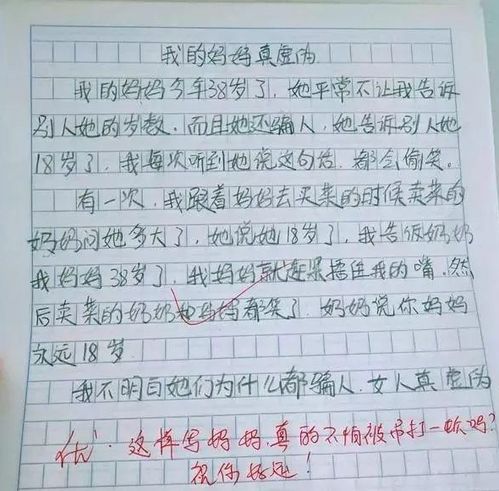 我的妈妈真虚伪
我的妈妈今年38岁了，她平常不让我告诉
别人她的岁数，而且她还骗人，她告诉别人她
18岁了，我每次听到她说这句话，都会偷笑。
有一次，我跟着妈妈去买菜的时候卖菜的
奶奶问她多大了，她说她18岁了，我告诉奶奶
我妈妈38岁了，我妈妈就赶紧捂住我的嘴，然
后卖菜的奶奶和妈妈都笑了，奶奶说你妈妈
永远18岁
我不明白她们为什么都骗人，女人真虚伪
优：这样写妈妈，真的不怕被吊打一顿吗？
祝你好运！